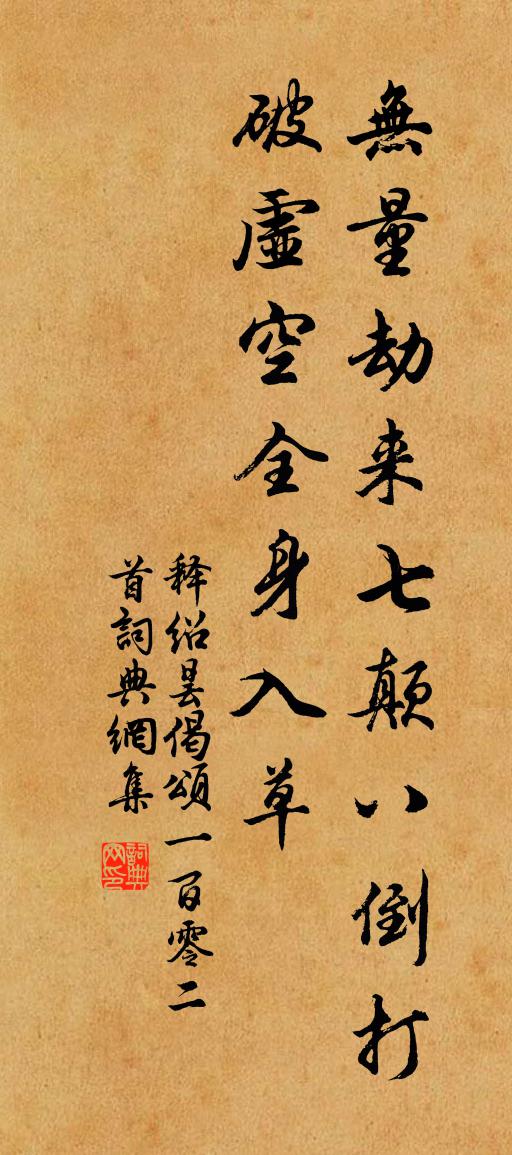 無量劫来七顛八倒打
破虛空全身入草
释绍昙偈頌一百零二
首詞典網集
詞典网印